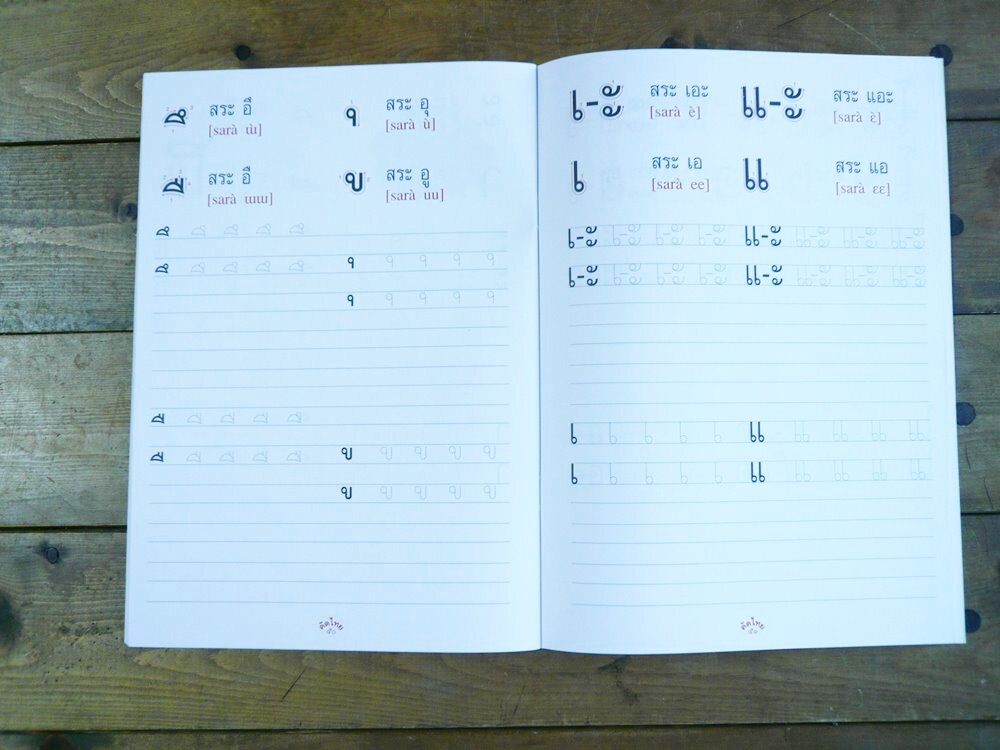 สระ อึ
[sarà ɯ̀]
สระ อุ
[sarà ù]
สระ อื
[sarà ɯɯ]
สระ อู
[sarà uu]
เ-ะ
สระ เอะ
[sarà è]
แ-ะ
สระ แอะ
[sarà ɛ̀]
เ
สระ เอ
[sarà ee]
แ
สระ แอ
[sarà ɛɛ]
เ-ะ เ-ะ เ-ะ เ-ะ แ-ะ แ-ะ แ-ะ แ-ะ
เ-ะ เ-ะ เ-ะ เ-ะ แ-ะ แ-ะ แ-ะ แ-ะ
เ เ เ เ เ แ แ แ แ แ
เ เ เ เ เ แ แ แ แ แ
คัดไทย
คัดไทย